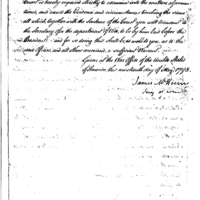 Court is hereby required strictly to examine into the matters afforemen-
tioned, and record the Evidence and circumstances touching the same
all which together with the Sentence of the Court you will transmit to
the Secretary for the department of War, to be by him laid before the
President - and for so doing this shall be, as well to you, as to the
and all others concerned, a sufficient Warrant.
Given at the War Office of the United States
of America, this nineteenth day of May 1798.
James McHenry
Secy of War